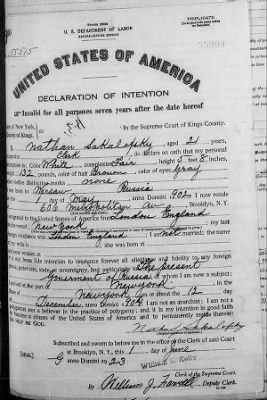 U. S. DEPARTMENT OF LABOR
NATURALIZATION SERVICE
TRIPLICATE
UNITED STATES OF AMERICA
DECLARATION OF INTENTION
Invalid for all purposes seven years after the date hereof
In the Supreme Court of Kings County.
Nathan Sakalofsky, aged 21 years,
occupation Clerk, do declare on oath that my personal
description is: Color White, complexion Fair, height 5 feet 8 inches,
weight 132 pounds, color of hair Brown, color of eyes Gray
other visible distinctive marks none
Warsaw Russia
1 day of May, anno Domini 1902; I now reside
at 606 Metropolitan av, Brooklyn, N.Y.
I emigrated to the United States of America from London England
my last
foreign residence was London England; I am not married; the name
she was born at
It is my bona fide intention to renounce forever all allegiance and fidelity to any foreign
prince, potentate, state, or sovereignty, and particularly to The present
Government of Russia, of whom I am now a subject;
I arrived at the port of New York, in the
State of New York, on or about the 12 day
of December, anno Domini 1904; I am not an anarchist; I am not a
polygamist nor a believer in the practice of polygamy; and it is my intention in good faith
to become a citizen of the United States of America and to permanently reside therein:
SO HELP ME GOD.
Subscribed and sworn to before me in the office of the Clerk of said Court
at Brooklyn, N.Y., this 1 day of June
anno Domini 1923
[SEAL]
William E. Kelly
Clerk of the Supreme Court.
By William J. , Deputy Clerk.